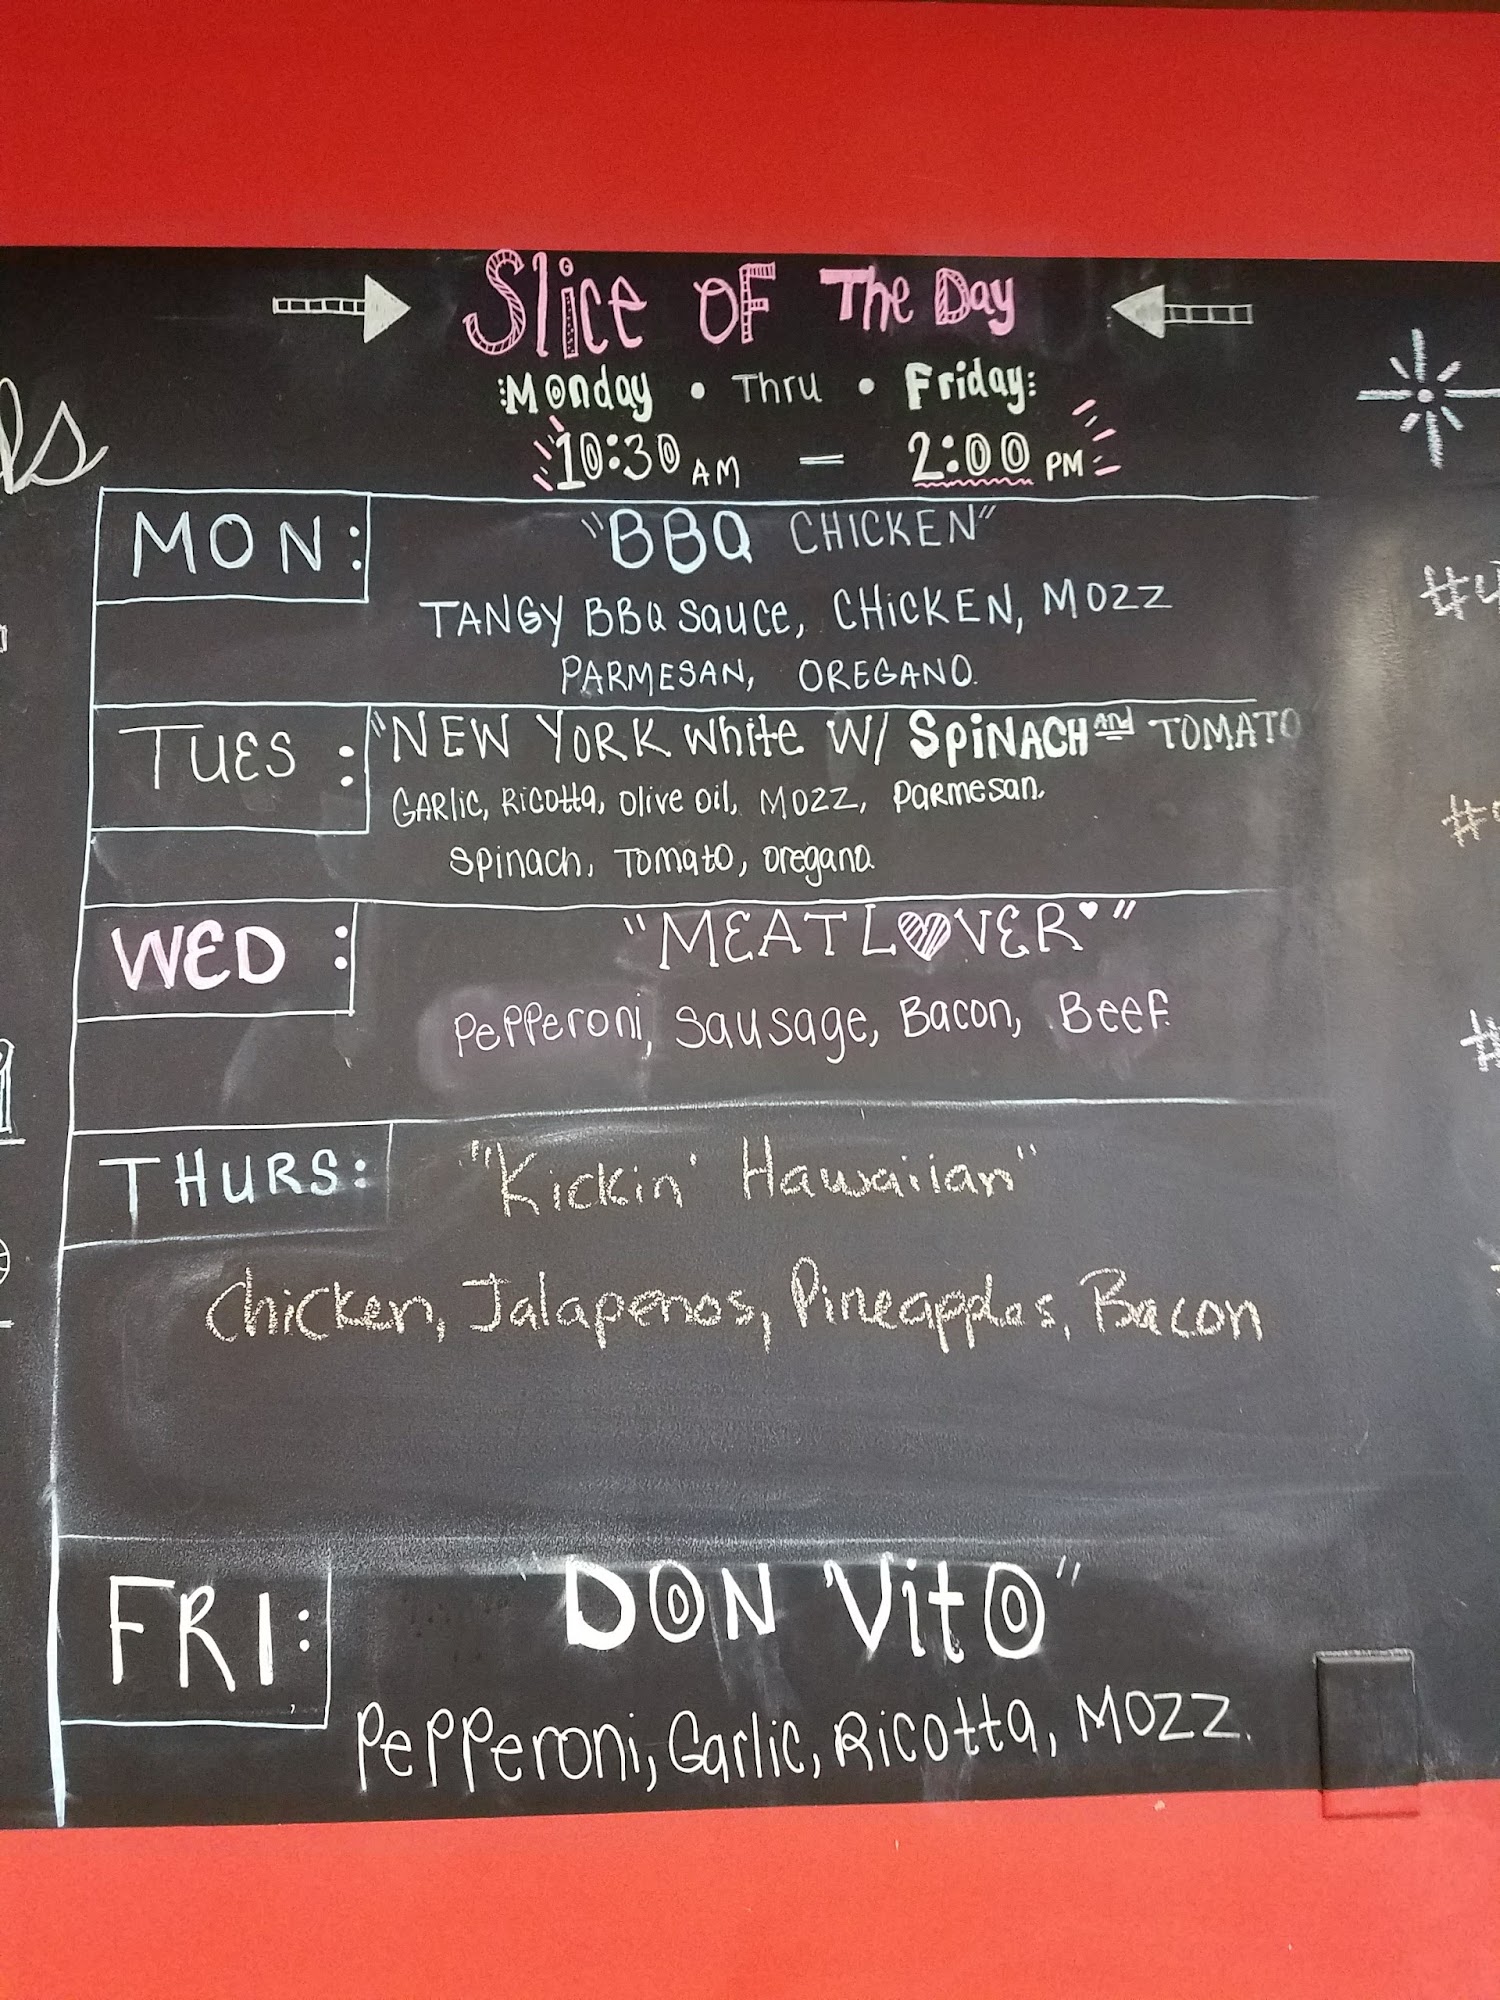 Slice OF The Day
Monday • Thru • Friday
10:30 AM — 2:00 PM
MON: "BBQ CHICKEN"
TANGY BBQ Sauce, CHICKEN, MOZZ
PARMESAN, OREGANO.
TUES: "NEW YORK White W/ SPINACH AND TOMATO
GARLIC, RICOTTA, Olive Oil, MOZZ, PARMESAN.
Spinach, TOMATO, Oregano
WED: "MEATLOVER"
Pepperoni, Sausage, Bacon, Beef.
THURS: "Kickin' Hawaiian"
Chicken, Jalapenos, Pineapples, Bacon
FRI: "DON Vito"
Pepperoni, Garlic, Ricotta, MOZZ.